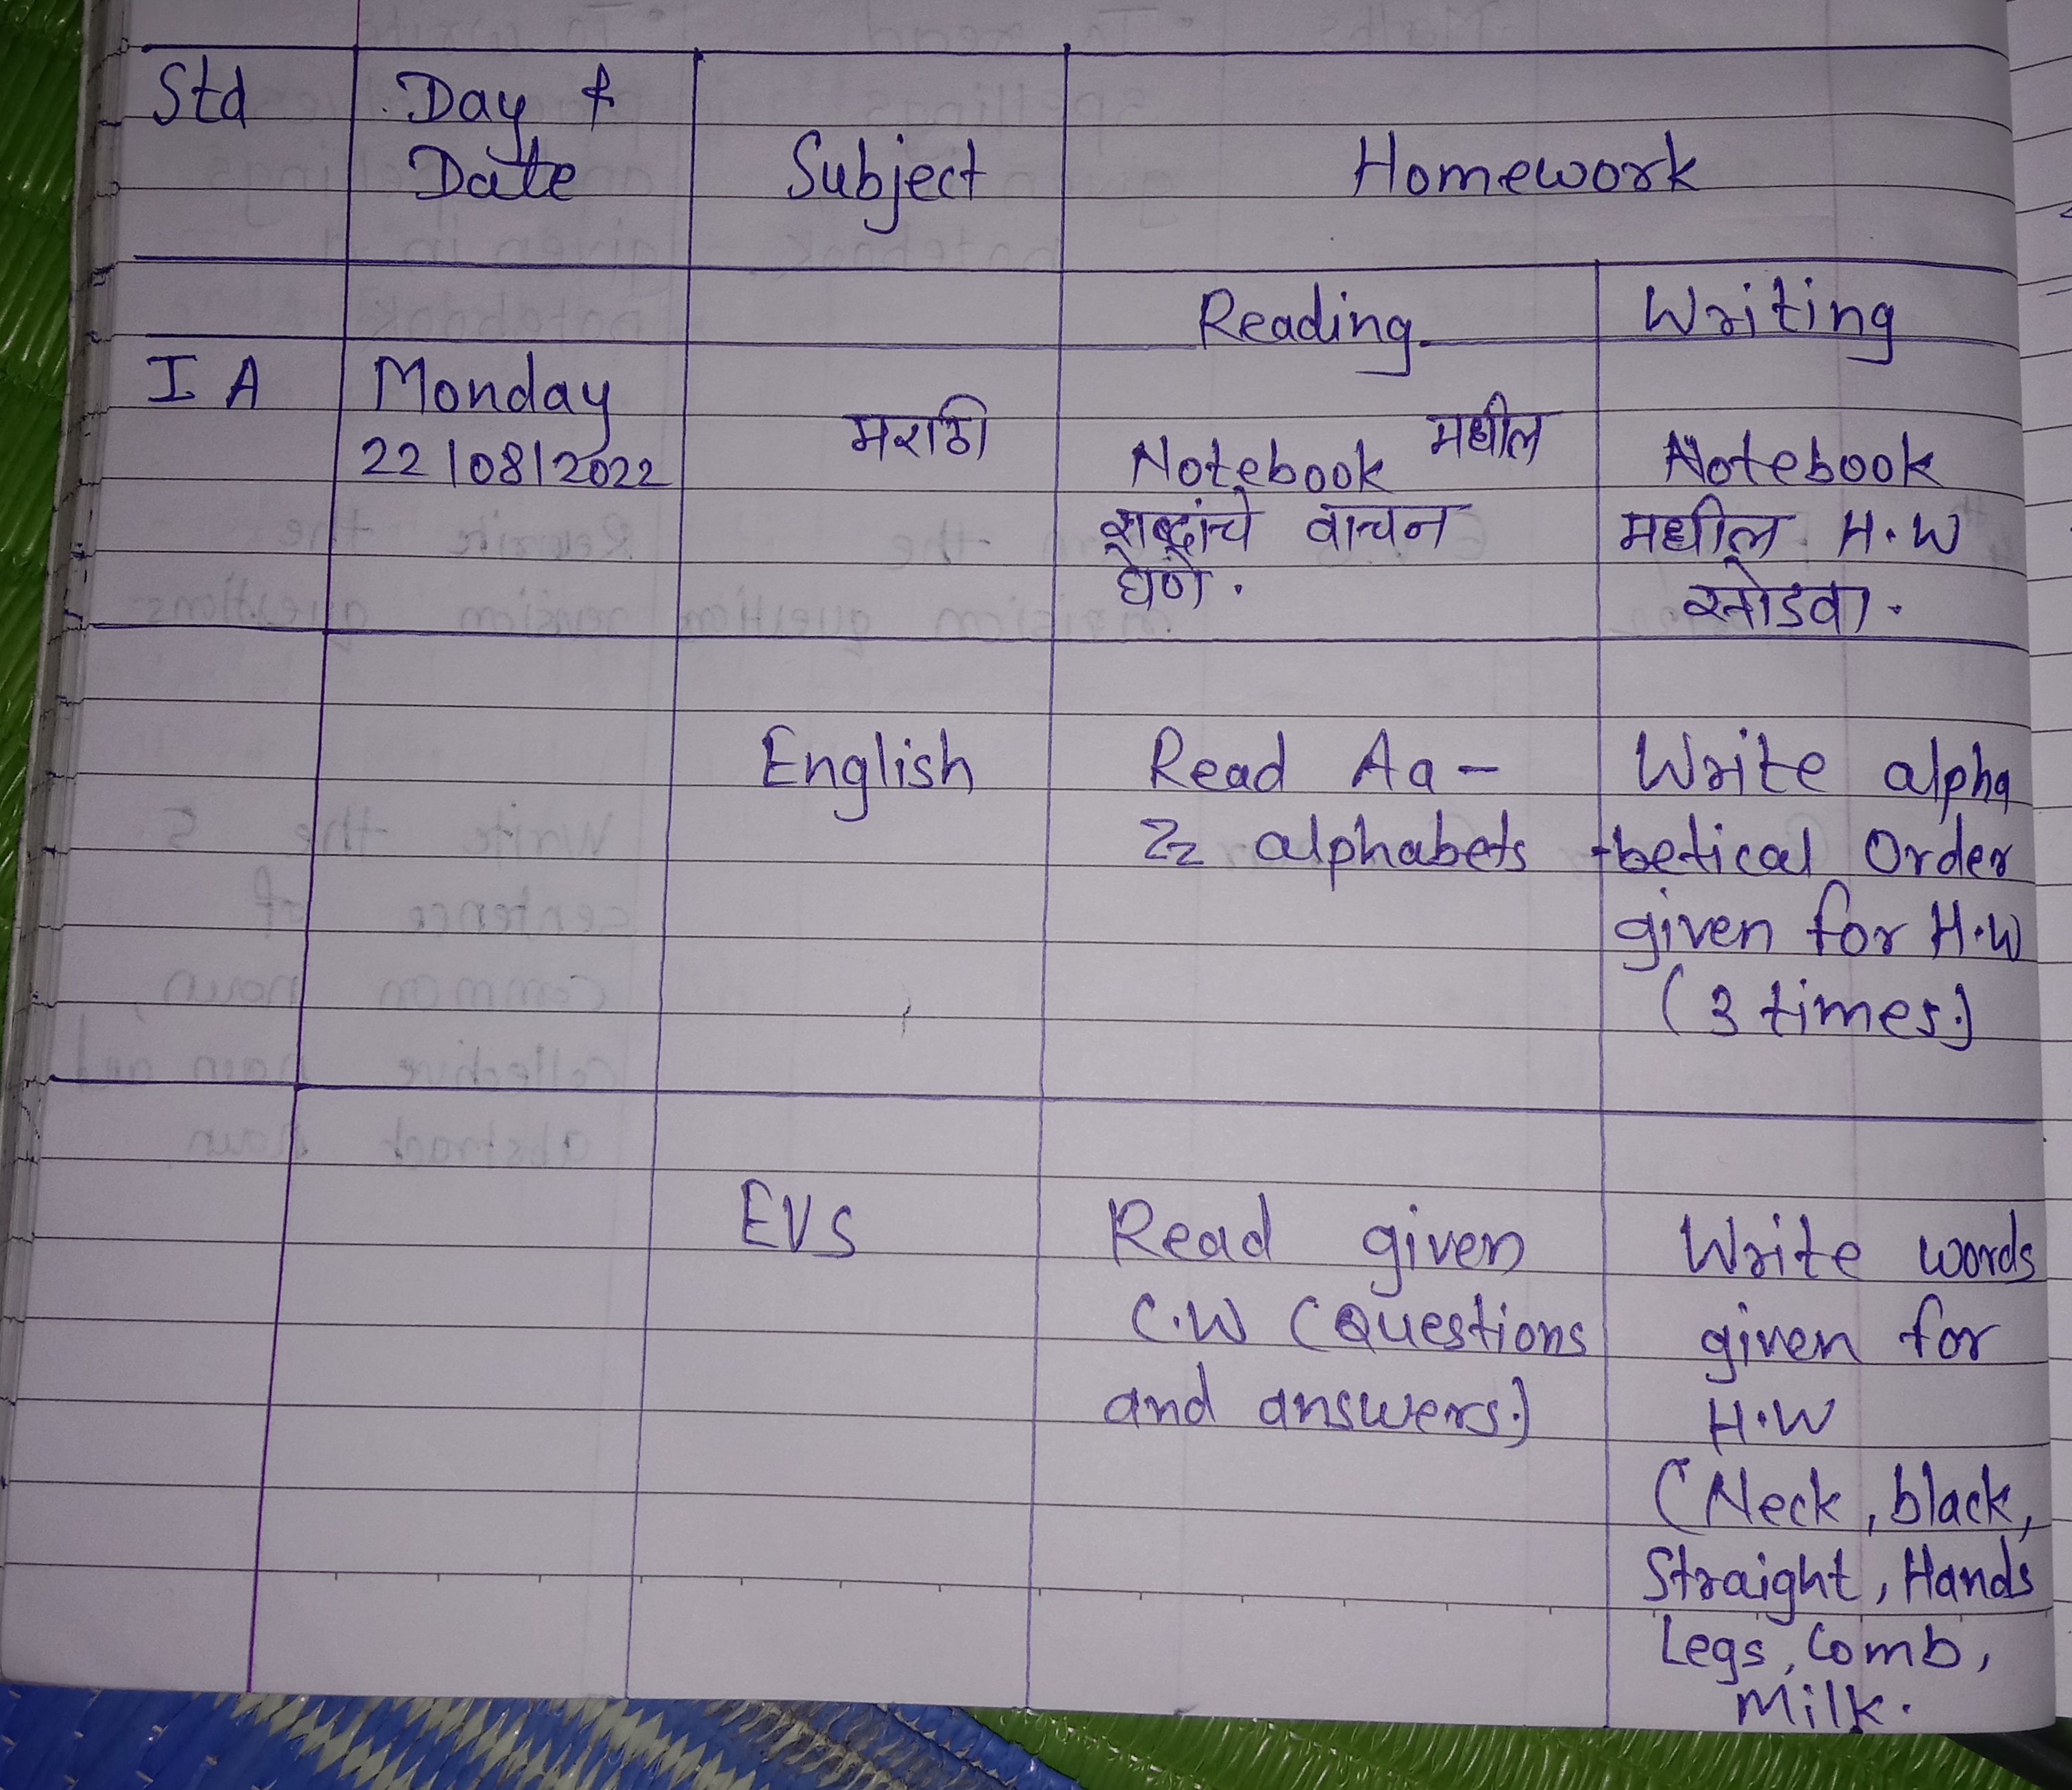 Std Day & Date Subject Homework
Reading Writing
I A Monday मराठी Notebook मधील Notebook
22/08/2022 शब्दांचे वाचन मधील H.W
घेणे. सोडवा.
English Read Aa- Write alpha
Zz alphabets -betical Order
given for H.W
(3 times.)
EVS Read given Write words
C.W (Questions given for
and answers.) H.W
(Neck, black,
Straight, Hands
Legs, Comb,
Milk.